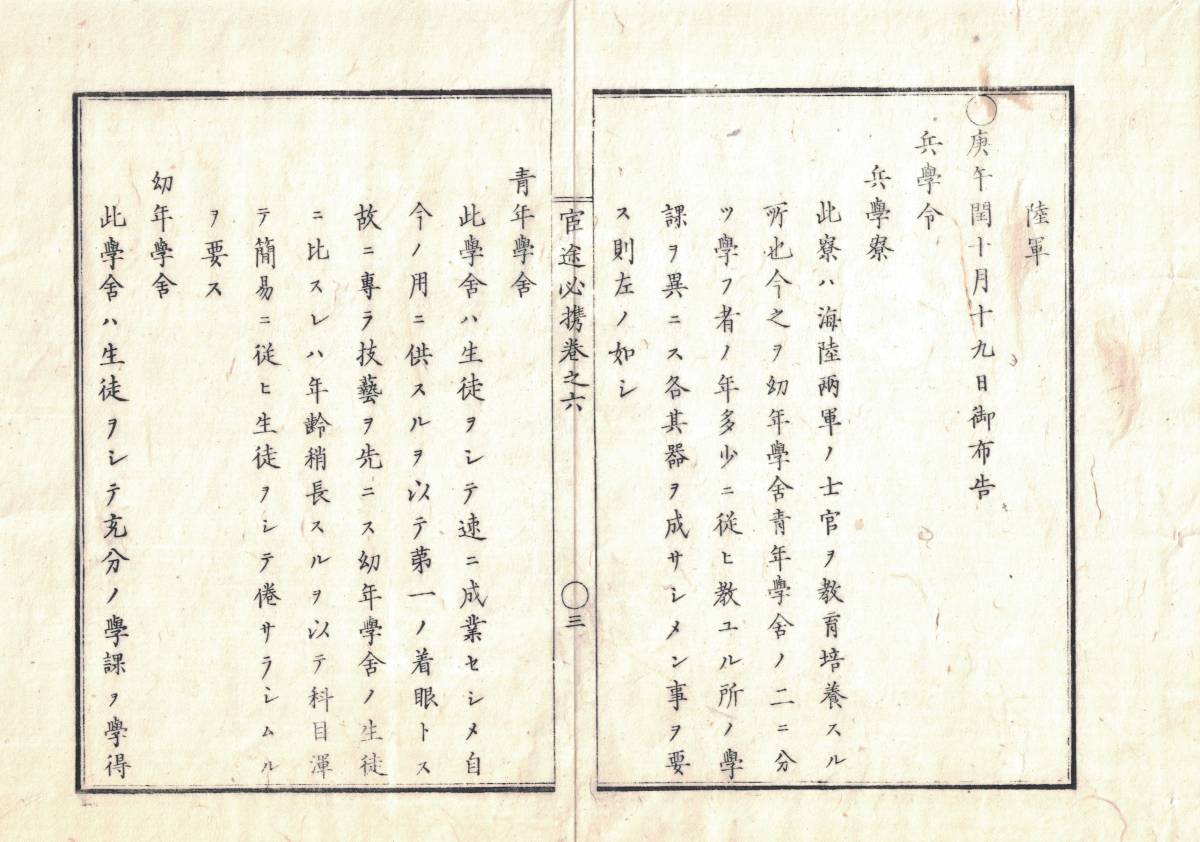 陸軍
○庚午閏十月十九日御布告
兵學令
兵學寮
此寮ハ海陸兩軍ノ士官ヲ教育培養スル
所也今之ヲ幼年學舍青年學舍ノ二ニ分
ツ學フ者ノ年多少ニ從ヒ教ユル所ノ學
課ヲ異ニス各其器ヲ成サシメン事ヲ要
ス則左ノ如シ
宦途必携卷之六
○三
青年學舍
此學舍ハ生徒ヲシテ速ニ成業セシメ自
今ノ用ニ供スルヲ以テ第一ノ着眼トス
故ニ專ラ技藝ヲ先ニス幼年學舍ノ生徒
ニ比スレハ年齡稍長スルヲ以テ科目渾
テ簡易ニ從ヒ生徒ヲシテ倦サラシムル
ヲ要ス
幼年學舍
此學舍ハ生徒ヲシテ充分ノ學課ヲ學得